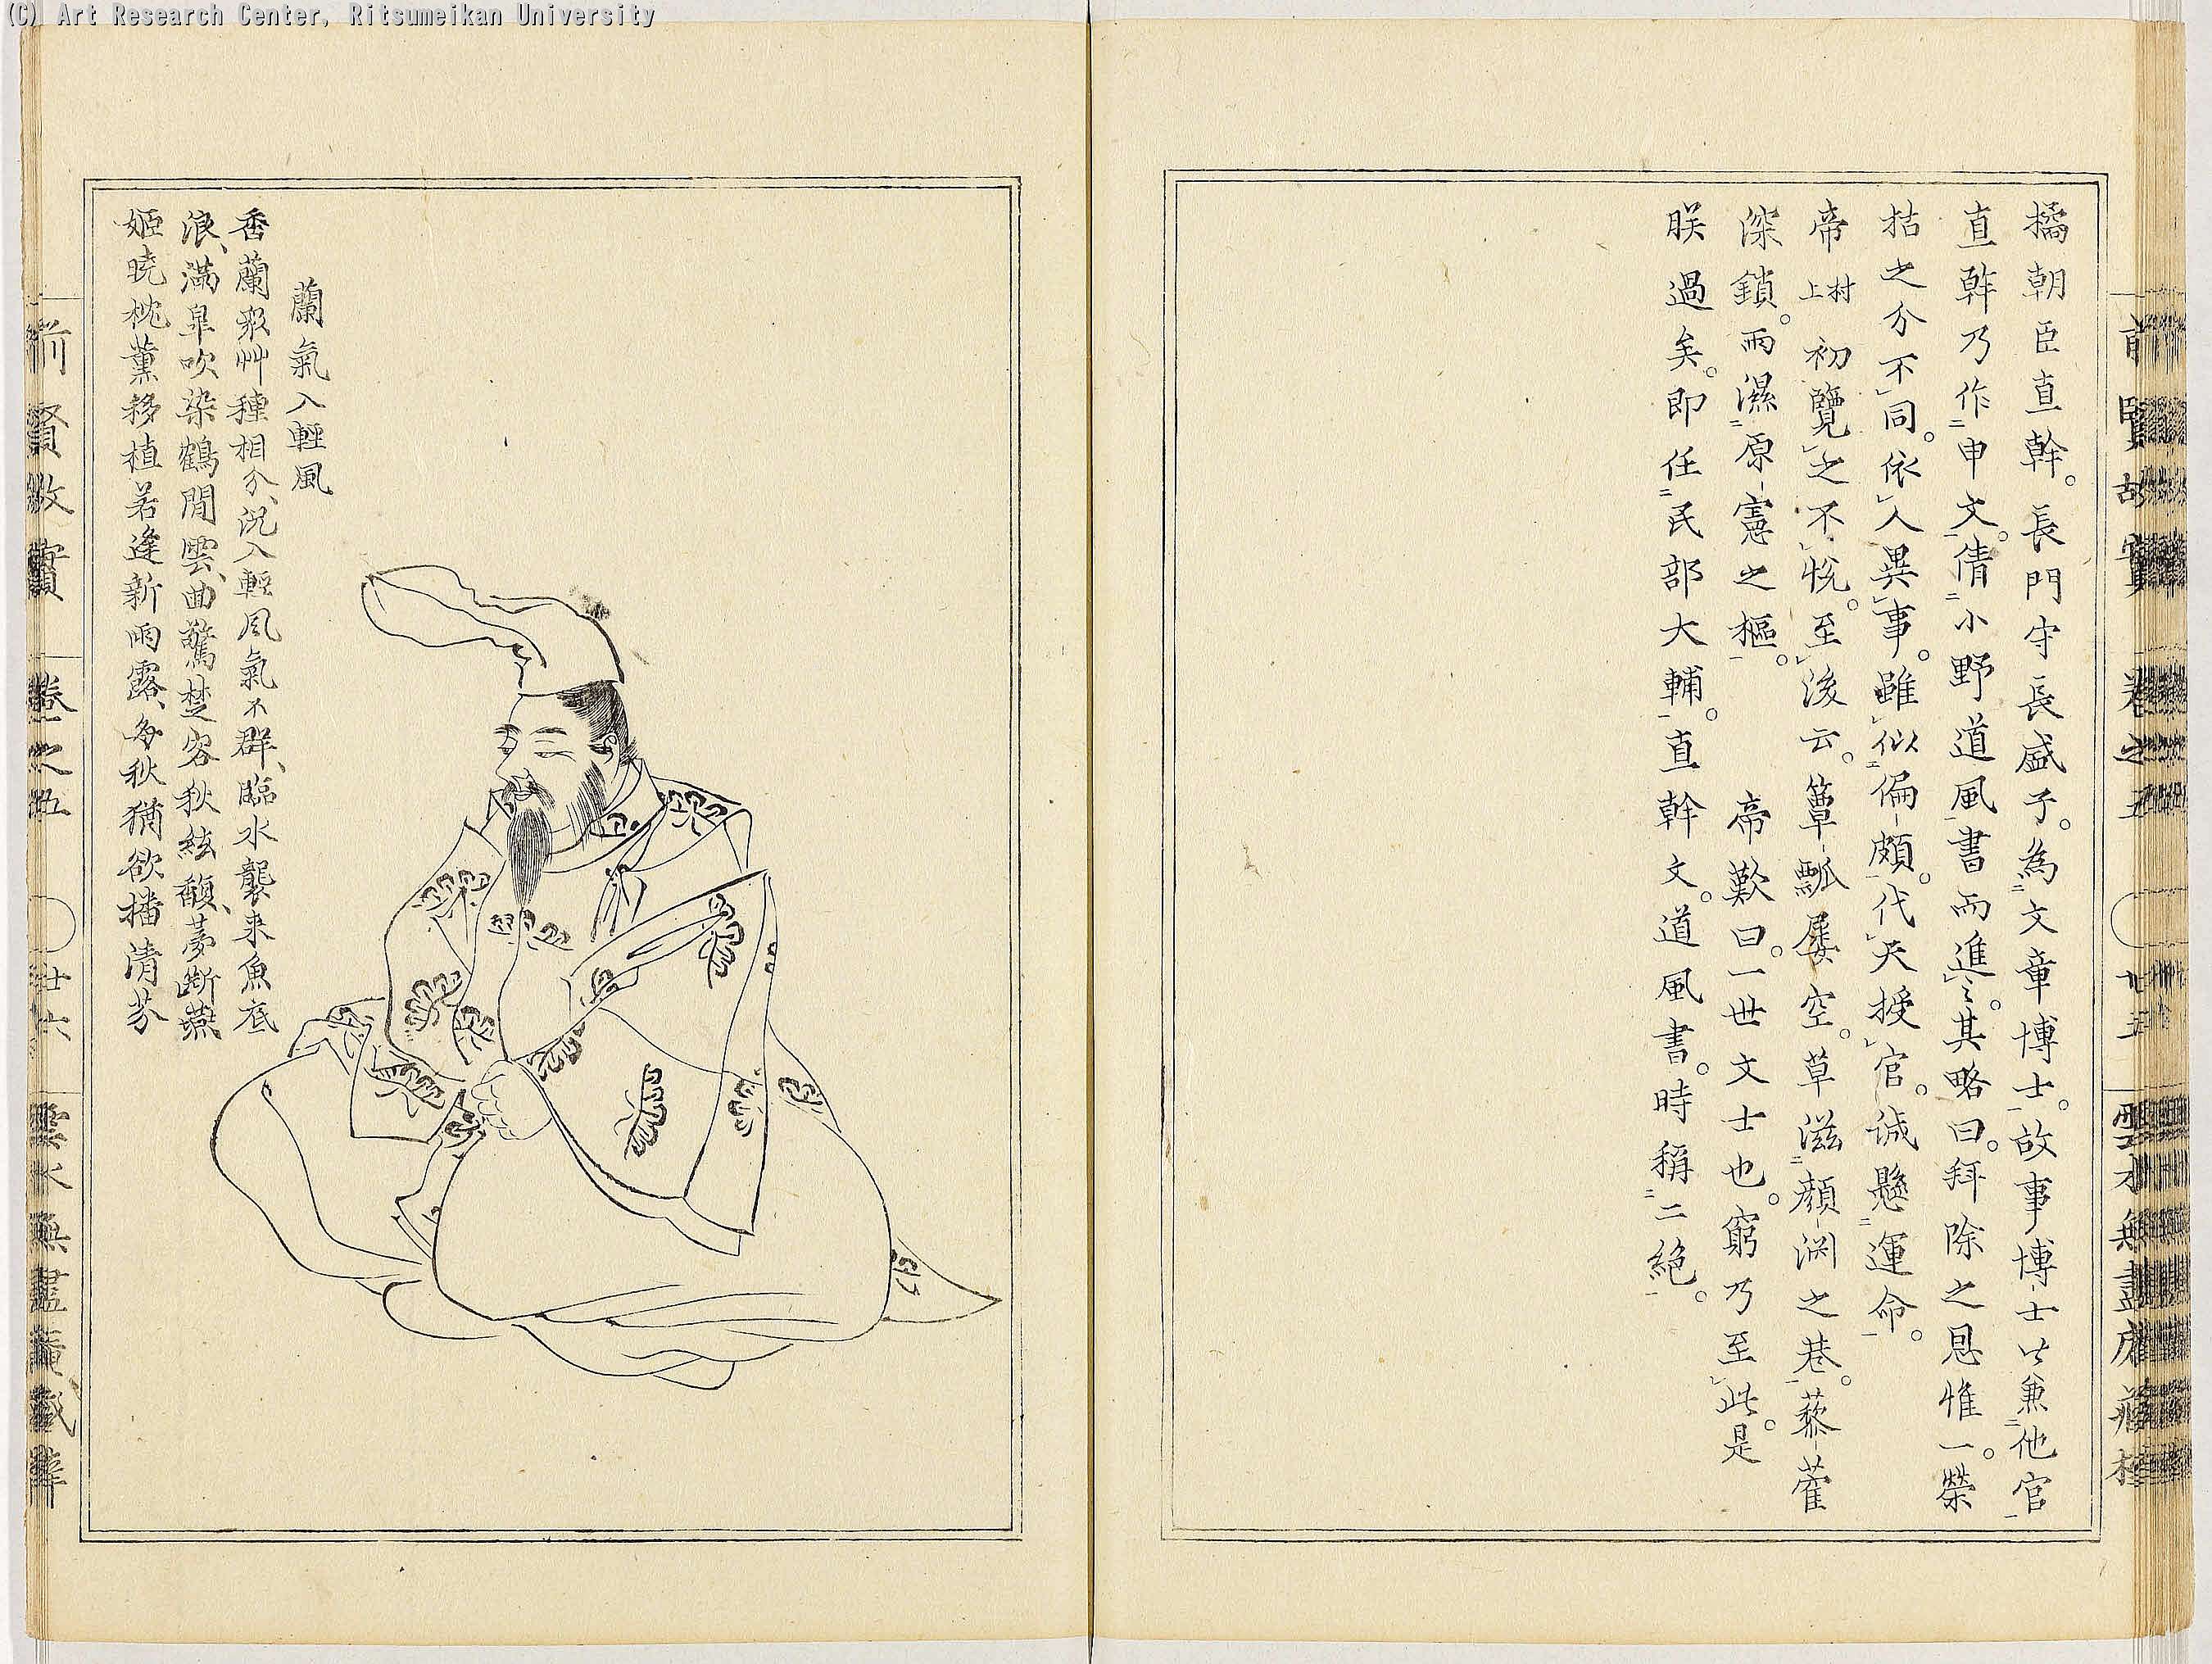 (C) Art Research Center, Ritsumeikan University
橘朝臣直幹。長門守長盛子。為二文章博士一。故事博士以兼二他官一
直幹乃作二申文一。倩二小野道風一書而進レ之。其略曰。拜除之恩惟一。榮
枯之分不レ同。依レ人異レ事。雖レ似二偏頗一。代レ天授レ官。誠懸二運命一。
帝村上初覽レ之不レ悅。至レ後云。簞瓢屢空。草滋二顏淵之巷一。藜藿
深鎖。雨濕二原憲之樞一。帝歎曰。一世文士也。窮乃至レ此。是
朕過矣。即任二民部大輔一。直幹文。道風書。時稱二二絕一。
前賢故實 卷之五 廿五 雲水無盡庵藏
蘭氣入輕風
香蘭衆艸種相分、況入輕風氣不群、臨水襲来魚底
浪、滿皐吹染鶴間雲、曲驚楚客秋絃馥、夢斷燕
姬曉枕薰、移植若逢新雨露、多秋猶欲播清芬
前賢故實 卷之五 廿六 雲水無盡庵藏